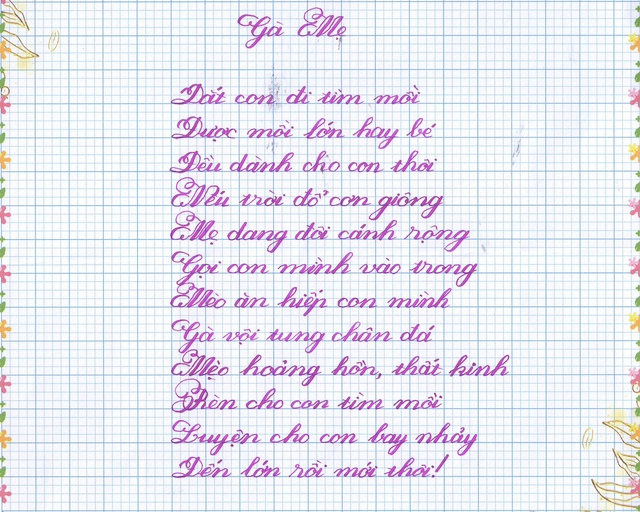 Gà Mẹ
Dắt con đi tìm mồi
Được mồi lớn hay bé
Đều dành cho con thôi
Nếu trời đổ cơn giông
Mẹ dang đôi cánh rộng
Gọi con mình vào trong
Mèo ăn hiếp con mình
Gà vội tung chân đá
Mèo hoảng hồn, thất kinh
Rèn cho con tìm mồi
Luyện cho con bay nhảy
Đến lớn rồi mới thôi!